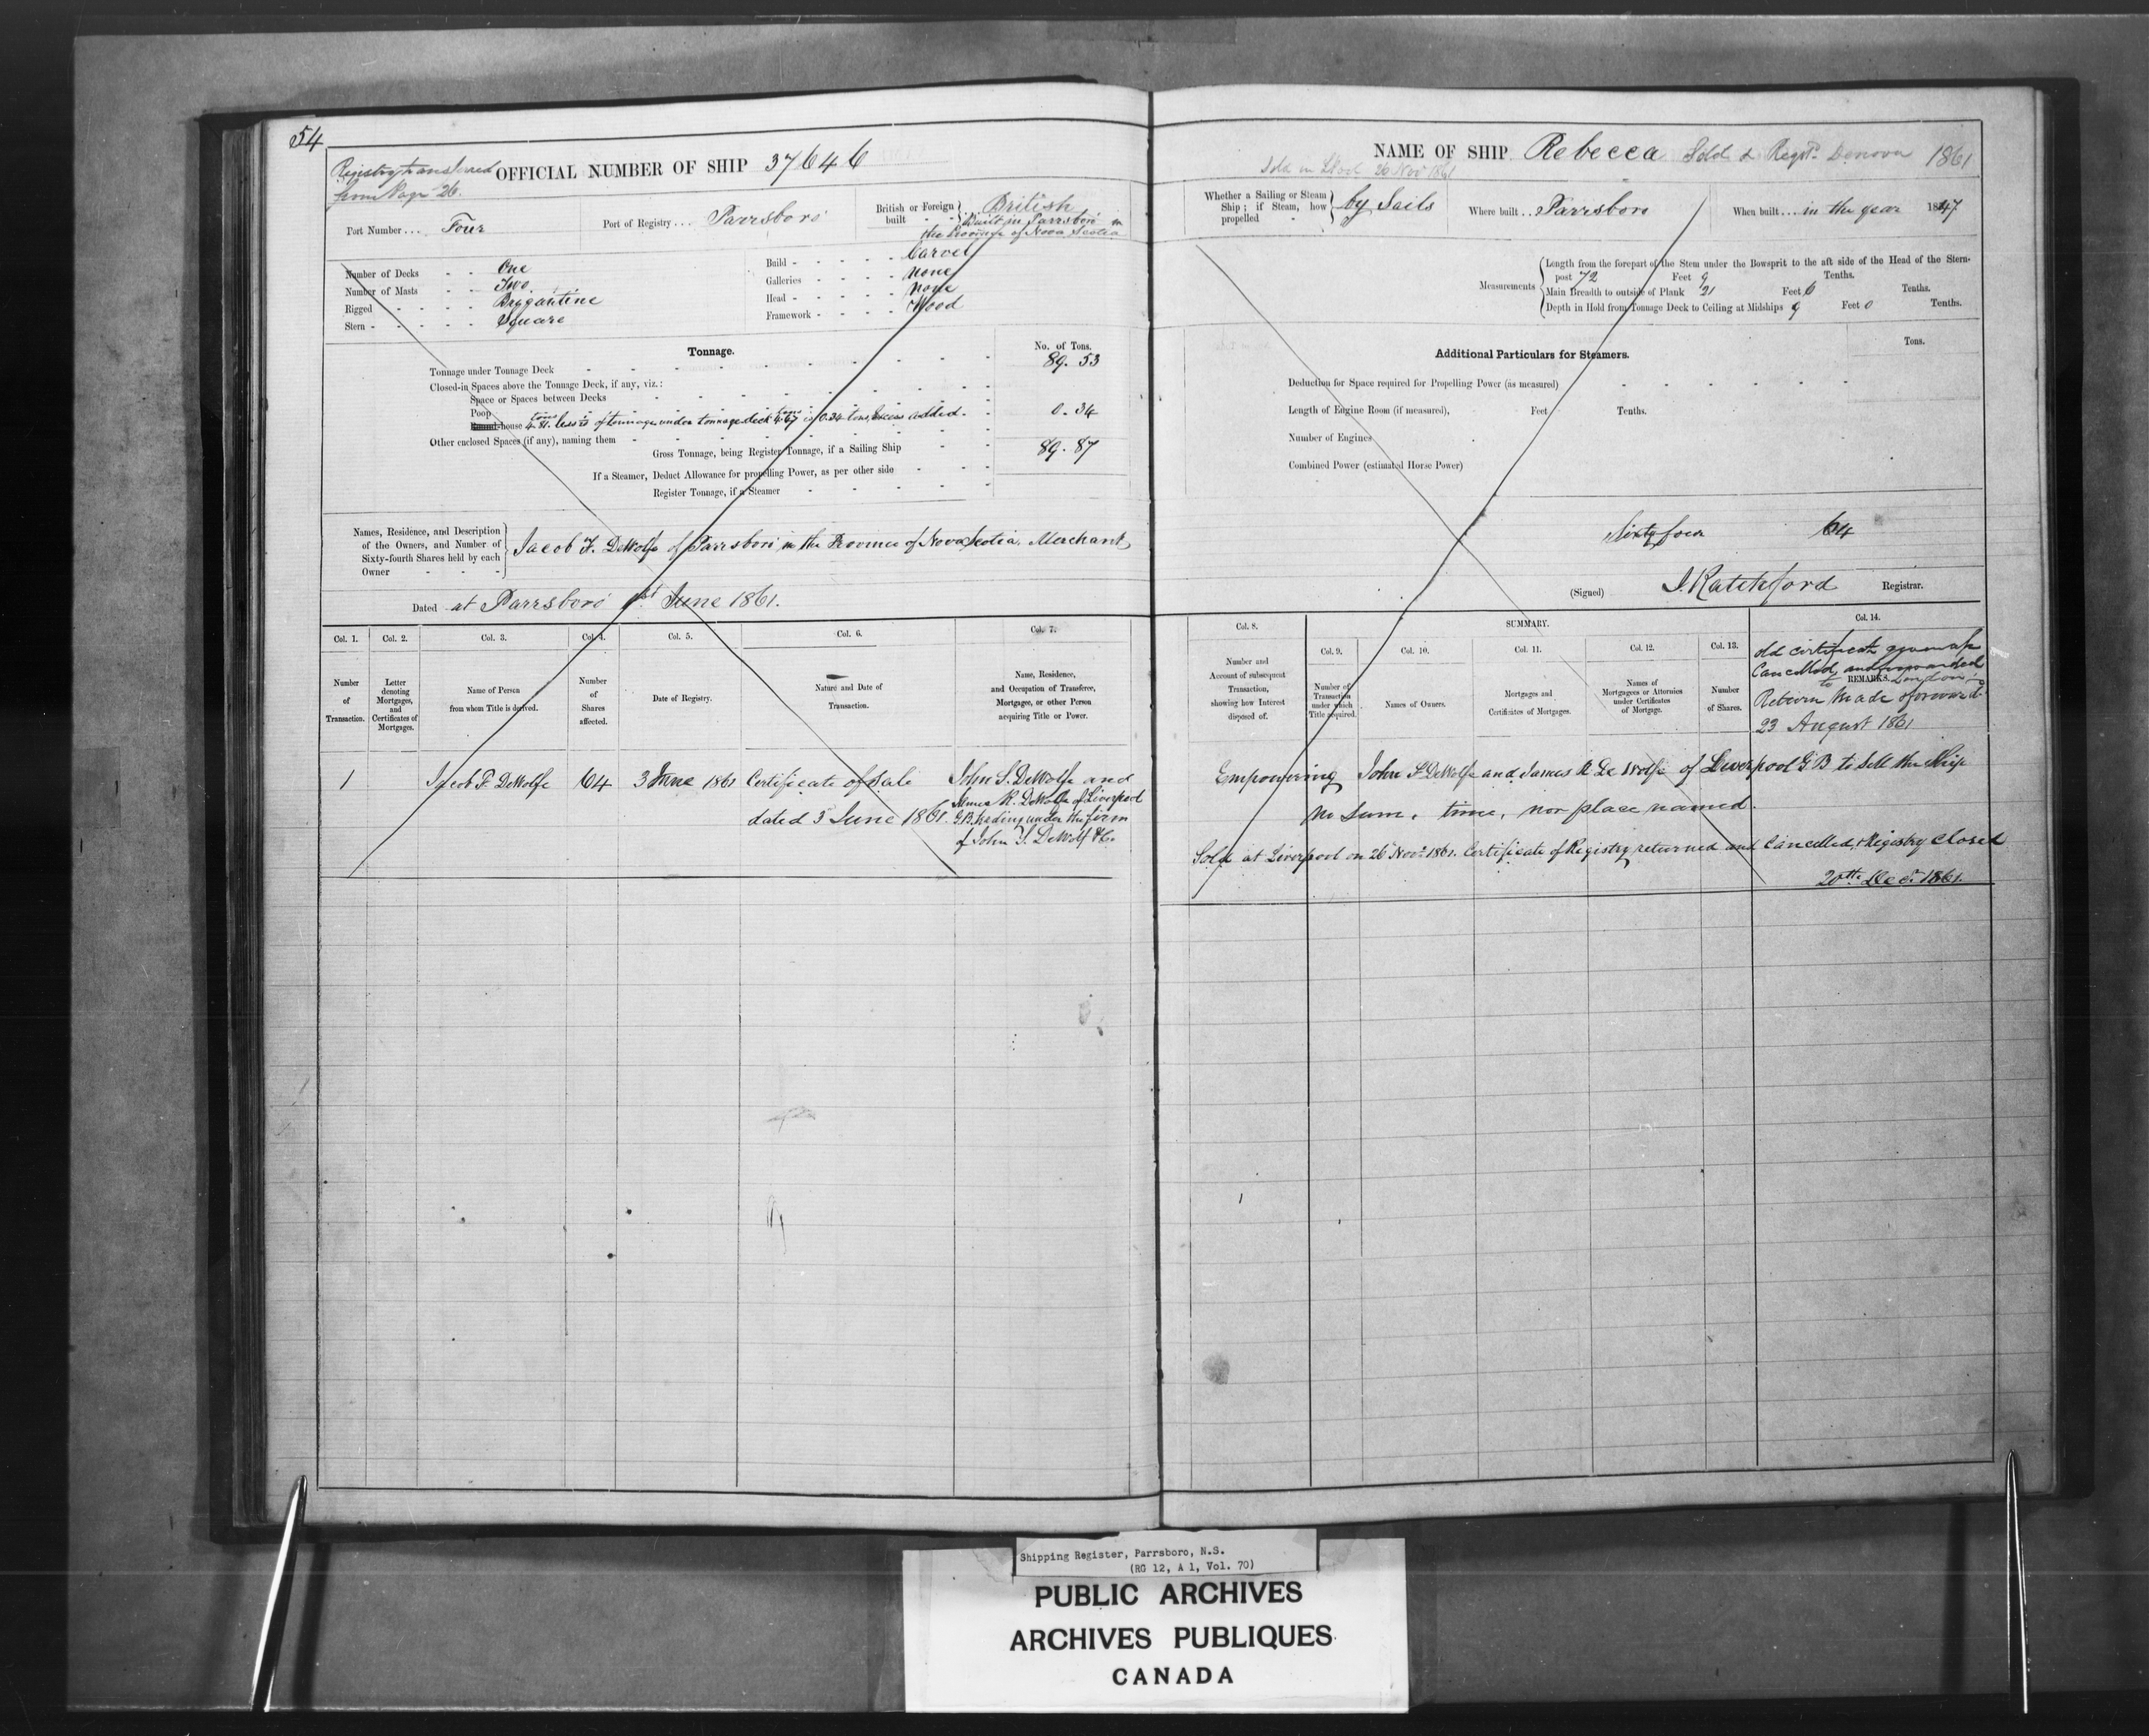 54
Registry transferred
from Page 26.
OFFICIAL NUMBER OF SHIP 37646
Port Number... Four
Port of Registry... Parrsboro
British or Foreign built - - British
Built in Parrsboro in
the Province of Nova Scotia
Number of Decks - - One
Number of Masts - - Two
Rigged - - - - - Brygantine
Stern - - - - - Square
Build - - - - - Carvel
Galleries - - - - none
Head - - - - - none
Framework - - - - Wood
Tonnage.
No. of Tons.
Tonnage under Tonnage Deck 89.53
Closed-in Spaces above the Tonnage Deck, if any, viz.:
Space or Spaces between Decks
Poop
house 4.81 tons less of tonnage under tonnage deck 4.47 tons is 0.34 tons, Excess added. 0.34
Other enclosed Spaces (if any), naming them
Gross Tonnage, being Register Tonnage, if a Sailing Ship 89.87
If a Steamer, Deduct Allowance for propelling Power, as per other side
Register Tonnage, if a Steamer
Names, Residence, and Description
of the Owners, and Number of
Sixty-fourth Shares held by each
Owner - - -
Jacob F. DeWolfe of Parrsboro in the Province of Nova Scotia, Merchant
Dated at Parrsboro 1st June 1861.
Col. 1. Col. 2. Col. 3. Col. 4. Col. 5. Col. 6. Col. 7.
Number of Transaction.
Letter denoting Mortgages, and Certificates of Mortgages.
Name of Person from whom Title is derived.
Number of Shares affected.
Date of Registry.
Nature and Date of Transaction.
Name, Residence, and Occupation of Transferee, Mortgagee, or other Person acquiring Title or Power.
1 Jacob F. DeWolfe 64 3 June 1861 Certificate of Sale
dated 3 June 1861.
John S. DeWolfe and
James R. DeWolfe of Liverpool
G.B. trading under the firm
of John S. DeWolf & Co.
NAME OF SHIP Rebecca Sold & Regd. 1861
Sold in Lpool 26 Nov 1861
Whether a Sailing or Steam Ship; if Steam, how propelled - by Sails
Where built.. Parrsboro
When built... in the year 1847
Measurements
Length from the forepart of the Stem under the Bowsprit to the aft side of the Head of the Stern-
post 72 Feet 9 Tenths.
Main Breadth to outside of Plank 21 Feet 6 Tenths.
Depth in Hold from Tonnage Deck to Ceiling at Midships 9 Feet 0 Tenths.
Additional Particulars for Steamers.
Tons.
Deduction for Space required for Propelling Power (as measured)
Length of Engine Room (if measured), Feet Tenths.
Number of Engines
Combined Power (estimated Horse Power)
Sixty four 64
(Signed) J. Ratchford Registrar.
Col. 8.
SUMMARY.
Col. 9. Col. 10. Col. 11. Col. 12. Col. 13. Col. 14.
Number and Account of subsequent Transaction, showing how Interest disposed of.
Number of Transaction under which Title acquired.
Names of Owners.
Mortgages and Certificates of Mortgages.
Names of Mortgagees or Attornies under Certificates of Mortgage.
Number of Shares.
REMARKS.
old certificate given up
Cancelled, and forwarded
to London
Return made & forward
23 August 1861
Empowering John S DeWolfe and James R De Wolfe of Liverpool G B to sell the Ship
no sum, time, nor place named.
Sold at Liverpool on 26 Novr. 1861. Certificate of Registry returned and Cancelled, & Registry Closed
20th Decr. 1861.
Shipping Register, Parrsboro, N.S.
(RG 12, A 1, Vol. 70)
PUBLIC ARCHIVES
ARCHIVES PUBLIQUES
CANADA